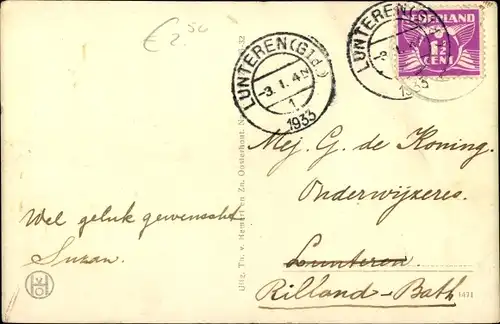 € 2.50
LUNTEREN (Gld.)
-3.1.4N
1
1933
LUNTEREN (G
-3.1.
1933
NEDERLAND
1½
CENT
Mej. G. de Koning.
Onderwijzeres.
Lunteren.
Rilland-Bath
Wel geluk gewenscht
Suzan.
Uitg. Th. v. Hemert en Zn. Oosterhout.
1471